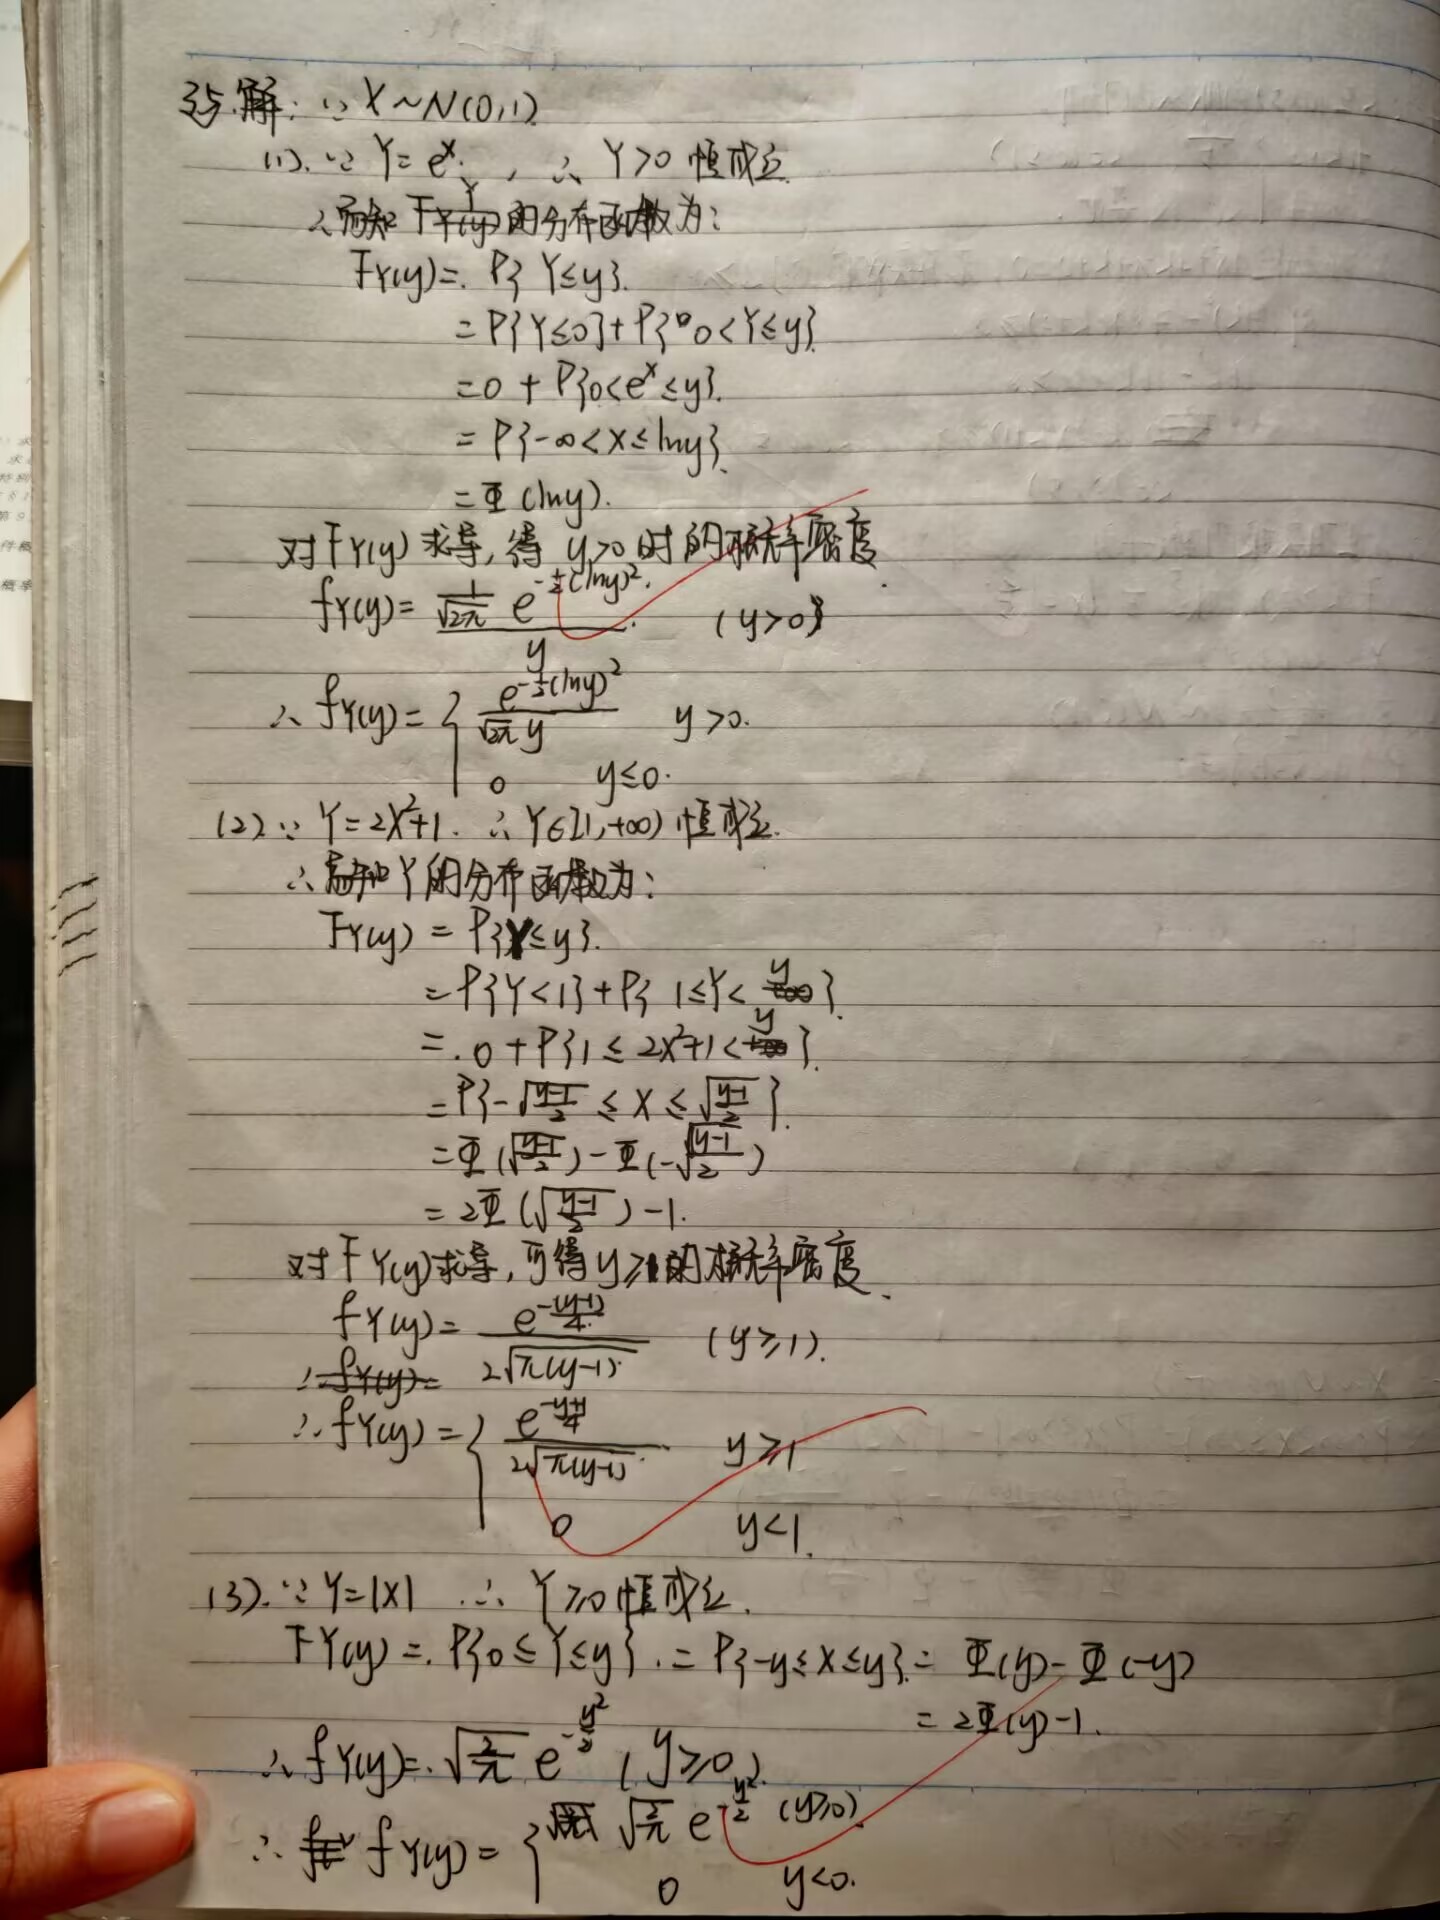 35.解: ∵ X~N(0,1)
(1). ∵ Y=eˣ. , ∴ Y>0 恒成立.
∴易知 Y 的分布函数为:
FY(y)=. P{Y≤y}.
=P{Y≤0}+P{0<Y≤y}.
=0 + P{0<eˣ≤y}.
= P{-∞<X≤lny}.
=Φ(lny).
对FY(y)求导,得 y>0时的概率密度.
fY(y)= (1/√2π e^(-1/2(lny)²))/y. (y>0}
∴ fY(y)={ e^(-1/2(lny)²)/(√2π y) y>0.
0 y≤0.
(2) ∵ Y=2X²+1. ∴ Y∈[1,+∞) 恒成立.
∴易知Y的分布函数为:
FY(y) = P{Y≤y}.
=P{Y<1}+P{1≤Y<y}.
=.0+P{1≤2X²+1<y}.
=P{-√((y-1)/2) ≤ X ≤ √((y-1)/2)}.
=Φ(√((y-1)/2))-Φ(-√((y-1)/2))
= 2Φ(√((y-1)/2))-1.
对FY(y)求导,可得y≥1的概率密度.
fY(y)= e^(-(y-1)/4)/(2√(π(y-1))) (y≥1).
∴ fY(y)=
∴ fY(y)={ e^((-y+1)/4)/(2√(π(y-1))) y≥1
0 y<1.
(3). ∵ Y=|X| ∴ Y≥0恒成立.
FY(y)=. P{0≤Y≤y}.= P{-y≤X≤y}.= Φ(y)-Φ(-y)
= 2Φ(y)-1.
∴ fY(y)=.√(2/π) e^(-y²/2) (y≥0).
∴ fY(y)={ √(2/π) e^(-y²/2) (y≥0).
0 y<0.